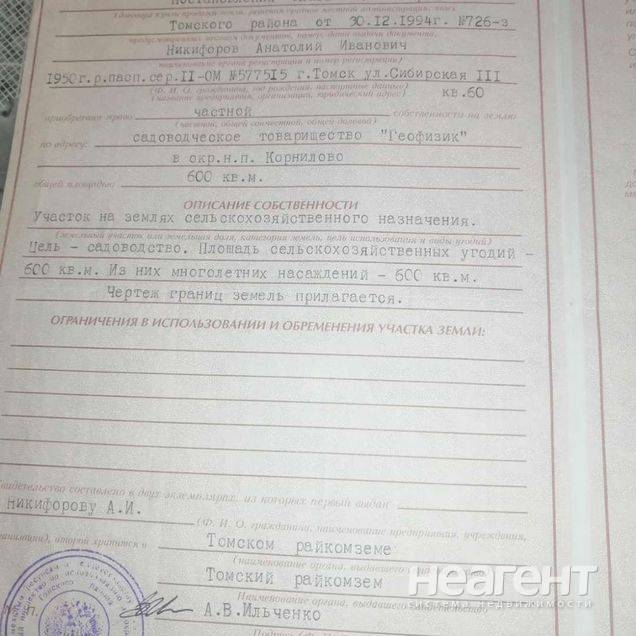 Томского района от 30.12.1994г. №726-з
Никифоров Анатолий Иванович
(наименование органа регистрации и номер регистрации)
1950г.р.пасп.сер.II-ОМ №577515 г.Томск ул.Сибирская III
(Ф. И. О. гражданина, год рождения, паспортные данные)
кв.60
(название предприятия, организации, юридический адрес)
приобретшая право частной собственности на землю
(частной, общей совместной, общей долевой)
садоводческое товарищество "Геофизик"
по адресу:
в окр.н.п. Корнилово
600 кв.м.
общей площадью
ОПИСАНИЕ СОБСТВЕННОСТИ
Участок на землях сельскохозяйственного назначения.
(земельный участок или земельная доля, категория земель, цель использования и виды угодий)
Цель - садоводство. Площадь сельскохозяйственных угодий -
600 кв.м. Из них многолетних насаждений - 600 кв.м.
Чертеж границ земель прилагается.
ОГРАНИЧЕНИЯ В ИСПОЛЬЗОВАНИИ И ОБРЕМЕНЕНИЯ УЧАСТКА ЗЕМЛИ:
видетельство составлено в двух экземплярах, из которых первый выдан
Никифорову А.И.
(Ф. И. О. гражданина, наименование предприятия, учреждения,
организации), второй хранится в Томском райкомземе
(наименование органа, выдавшего
Томский райкомзем
Наименование органа, выдавшего
М. П.
А.В.Ильченко
неагент
система недвижимости